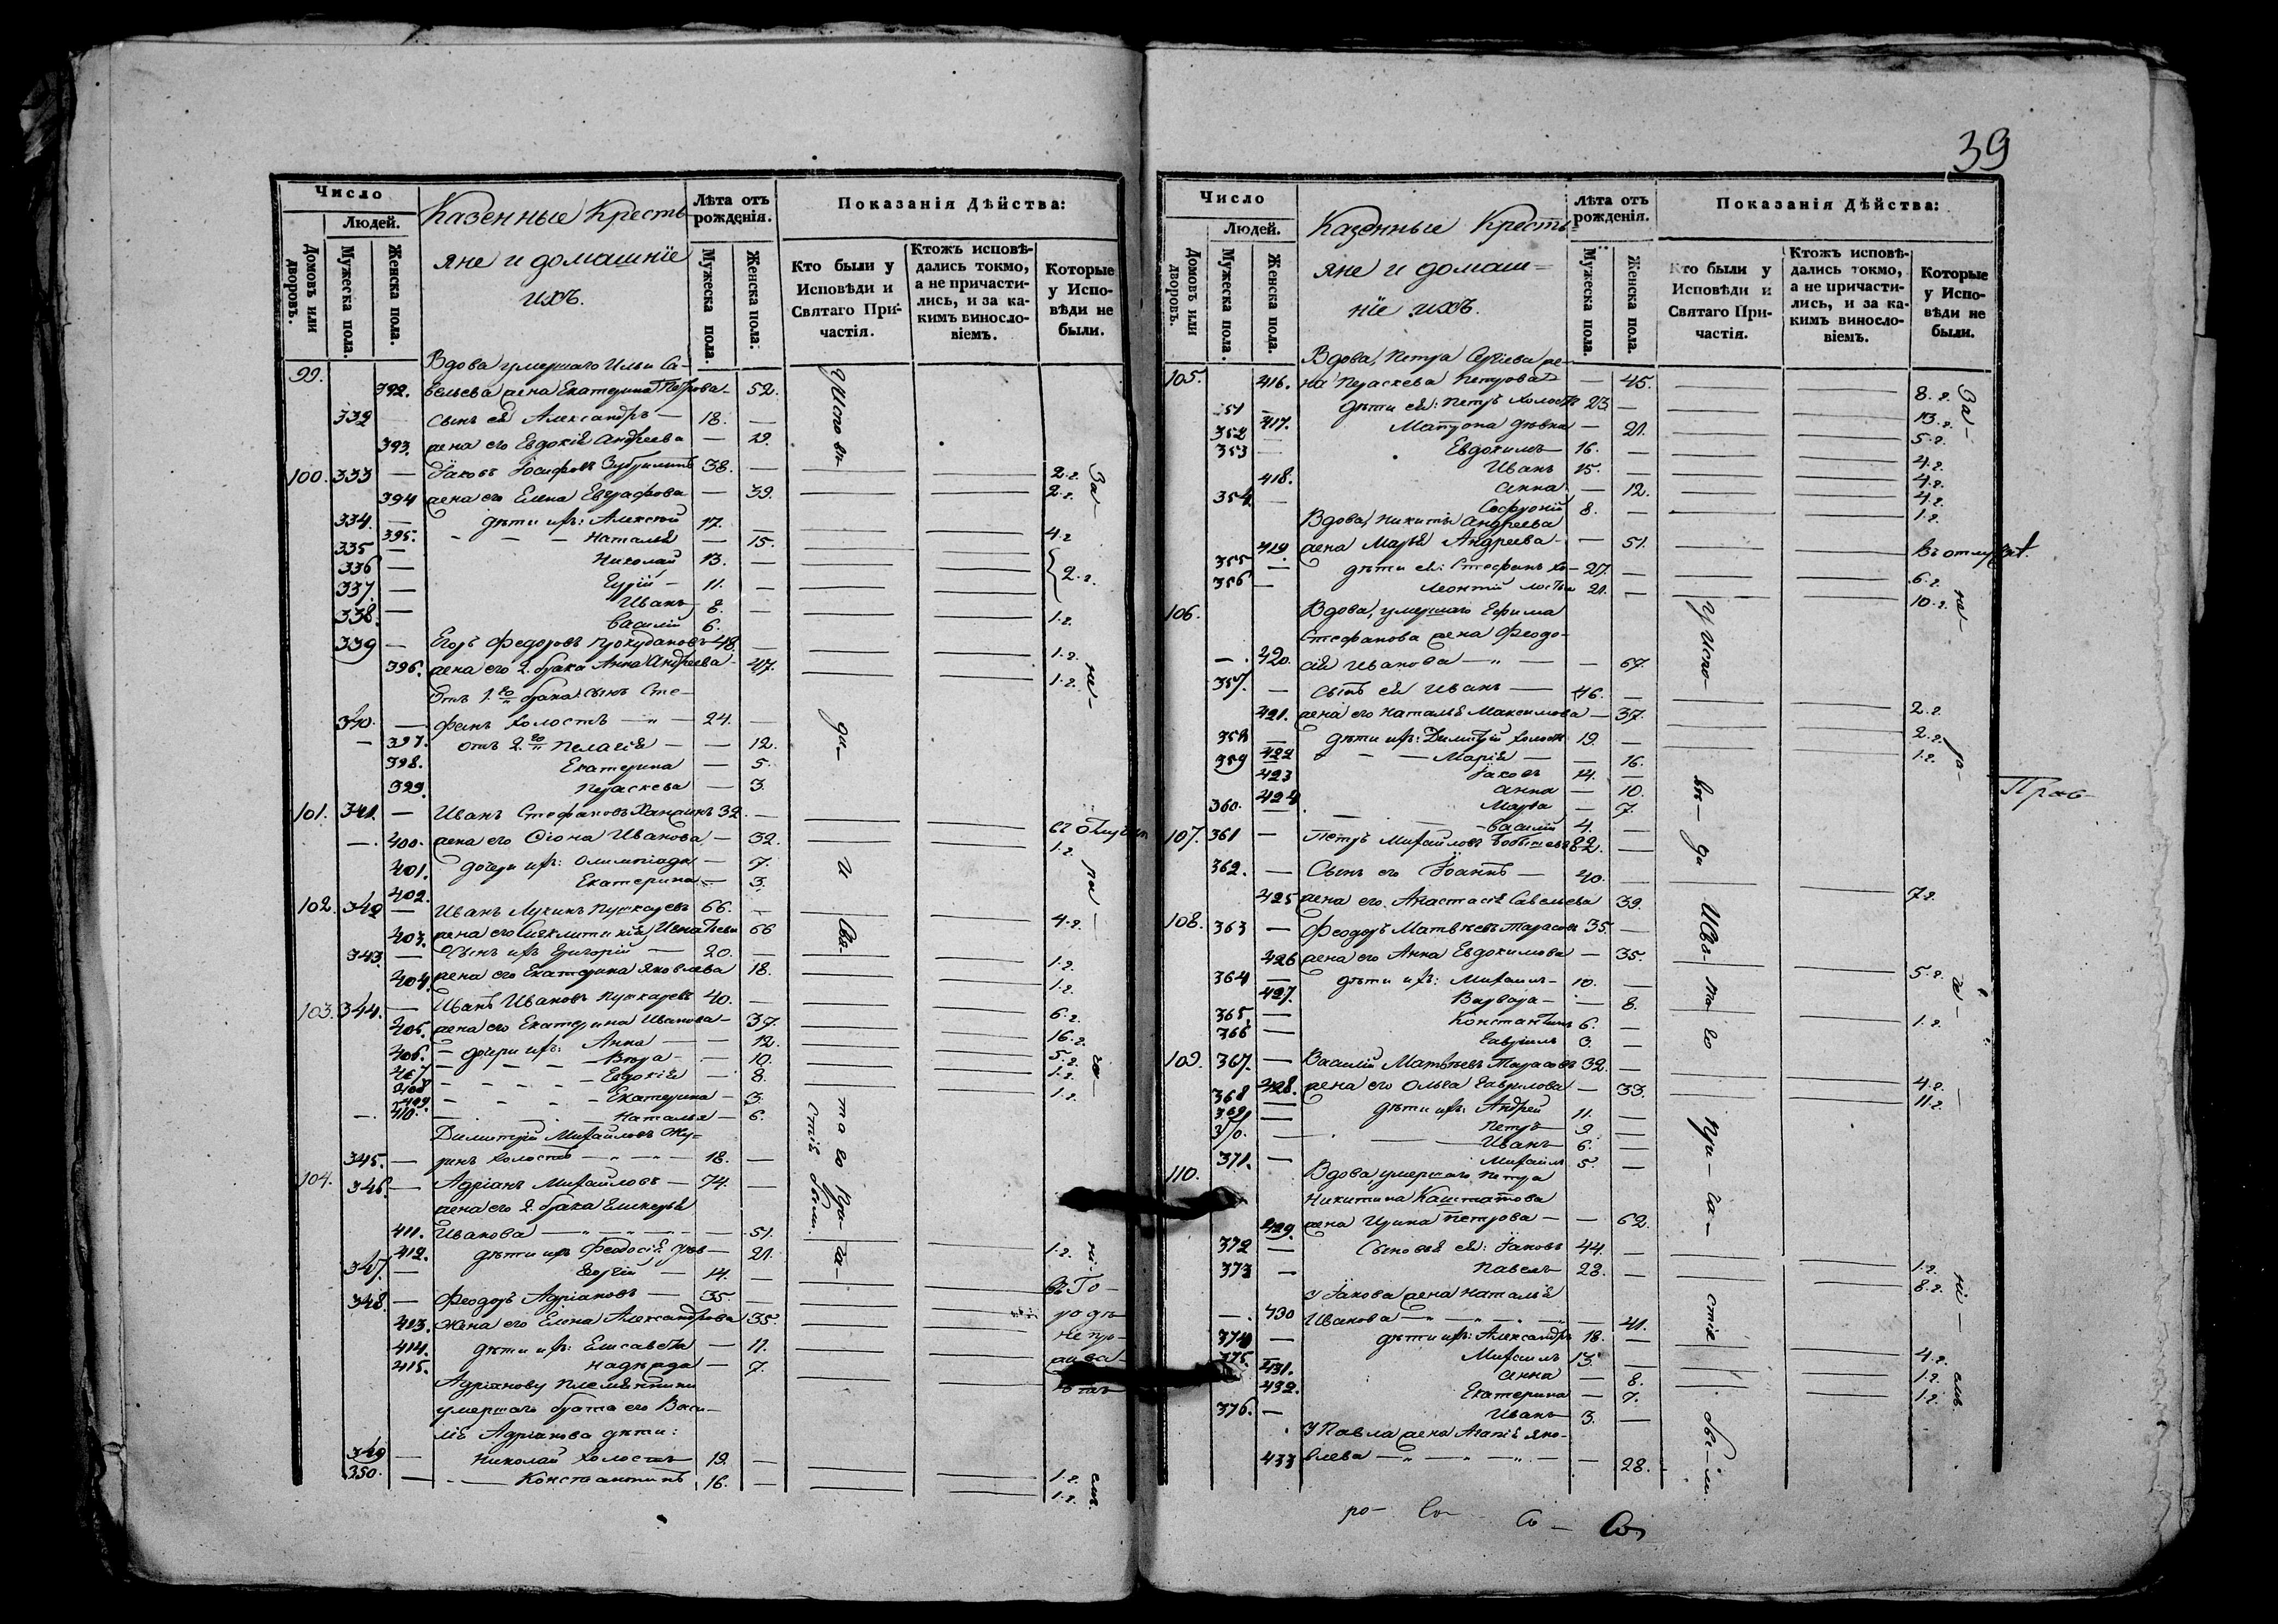 39
Число
Людей.
Домовъ или дворовъ.
Мужеска пола.
Женска пола.
Казенные Кресть-
яне и домашніе
ихъ.
Лѣта отъ рожденія.
Мужеска пола.
Женска пола.
Показанія Дѣйства:
Кто были у Исповѣди и Святаго Причастія.
Ктожъ исповѣ-
дались токмо,
а не причасти-
лись, и за ка-
кимъ винослo-
віемъ.
Которые
у Испо-
вѣди не
были.
99. Вдова умершаго Ильи Са-
392. вельева жена Екатерина Петрова 52.
332 сынъ ея Александръ 18.
393. жена его Евдокія Андреева 19.
100. 333 Іаковъ Іосифовъ 38. 2. г.
394 жена его Елена Евграфова 39. 2. г.
334. дѣти ихъ: Алексѣй 17. 4. г.
395. Наталья 15.
335 Николай 13. 2. г.
336 11.
337. Иванъ 8.
338. Василій 6. 1. г.
339 Егоръ Федоровъ 48. 1. г.
396. жена его 2. брака Анна Андреева 47. 1. г.
Отъ 1.го брака сынъ Сте-
340. фанъ холостъ 24.
397. отъ 2.го Пелагія 12.
398. Екатерина 5.
399. Параскева 3.
101. 341. Иванъ Стефановъ 32.
400. жена его Иванова 32. 1. г.
401. дочери ихъ: Олимпіада 7.
402. Екатерина 3.
102. 342 Иванъ Лукинъ Пушкаревъ 66. 4. г.
403. жена его 66
343. Сынъ ихъ Григорій 20. 1. г.
404. жена его Екатерина Яковлева 18. 1. г.
103. 344. Иванъ Ивановъ Пушкаревъ 40. 6. г.
405. жена его Екатерина Иванова 37. 16. г.
406. дочери ихъ: Анна 12. 5. г.
407 Вѣра 10. 1. г.
408 Евдокія 8. 1. г.
409. Екатерина 3.
410. Наталья 6.
Димитрій Михайловъ Жу-
345. ринъ холостъ 18.
104. 346. Адріанъ Михайловъ 74.
жена его 2. брака
411. Иванова 51.
412. дѣти ихъ Феодосія 21. 1. г.
347. Георгій 14.
348. Феодоръ Адріановъ 35.
413. Жена его Елена Александрова 35.
414. дѣти ихъ: Елисавета 11.
415. Надежда 7.
Адріанову племянники
умершаго брата его Васи-
лія Адріанова дѣти:
349 Николай холостъ 19. 1. г.
350. Константинъ 16. 1. г.
Число
Людей.
Домовъ или дворовъ.
Мужеска пола.
Женска пола.
Казенные Кресть-
яне и домаш=
ніе ихъ.
Лѣта отъ рожденія.
Мужеска пола.
Женска пола.
Показанія Дѣйства:
Кто были у Исповѣди и Святаго Причастія.
Ктожъ исповѣ-
дались токмо,
а не причасти-
лись, и за ка-
кимъ винослo-
віемъ.
Которые
у Испо-
вѣди не
были.
105. Вдова, Петра Сергіева же-
416. на Параскева Петрова 45. 8. г.
351 дѣти ея: Петръ холостъ 23. 13. г.
417. Матрона дѣвка 21. 5. г.
352 Евдокимъ 16. 4. г.
353 Иванъ 15. 4. г.
418. Анна 12. 4. г.
354 Софроній 8. 1. г.
Вдова, Никиты Андреева
419. жена Марья Андреева 51.
355 дѣти ея: Стефанъ хо- 27. 6. г.
356 Леонтій лосты 21. 10. г.
106. Вдова, умершаго Ефима
Стефанова жена Феодо-
420. сія Иванова 67.
357. сынъ ея Иванъ 46. 2. г.
421. жена его Наталья Максимова 37. 2. г.
358 дѣти ихъ: Димитрій холостъ 19. 1. г.
422 Марія 16.
359 Іаковъ 14.
423 Анна 10.
424 Марфа 7.
360. Василій 4.
107. 361 Петръ Михайловъ 82.
362. Сынъ его Іоаннъ 40. 7. г.
425 жена его Анастасія Савельева 39.
108. 363 Феодоръ Матвѣевъ Тарасовъ 35.
426 жена его Анна Евдокимова 35. 5. г.
364 дѣти ихъ: Михаилъ 10.
427. Варвара 8. 1. г.
365. Константинъ 6.
366 Гавріилъ 3.
109. 367. Василій Матвѣевъ Тарасовъ 32. 4. г.
428. жена его Ольга Гаврилова 33. 11. г.
368 дѣти ихъ: Андрей 11.
369 Петръ 9.
370. Иванъ 6.
371. Михаилъ 5.
110. Вдова, умершаго Петра
Никитина
429. жена Ирина Петрова 62.
372 Сыновья ея: Іаковъ 44. 1. г.
373 Павелъ 28. 8. г.
У Іакова жена Наталья
430 Иванова 41.
374 дѣти ихъ: Александръ 18. 4. г.
375. Михаилъ 13. 1. г.
431. Анна 8. 1. г.
432. Екатерина 7.
376. Иванъ 3.
У Павла жена Агапія Яко-
433 влева 28.